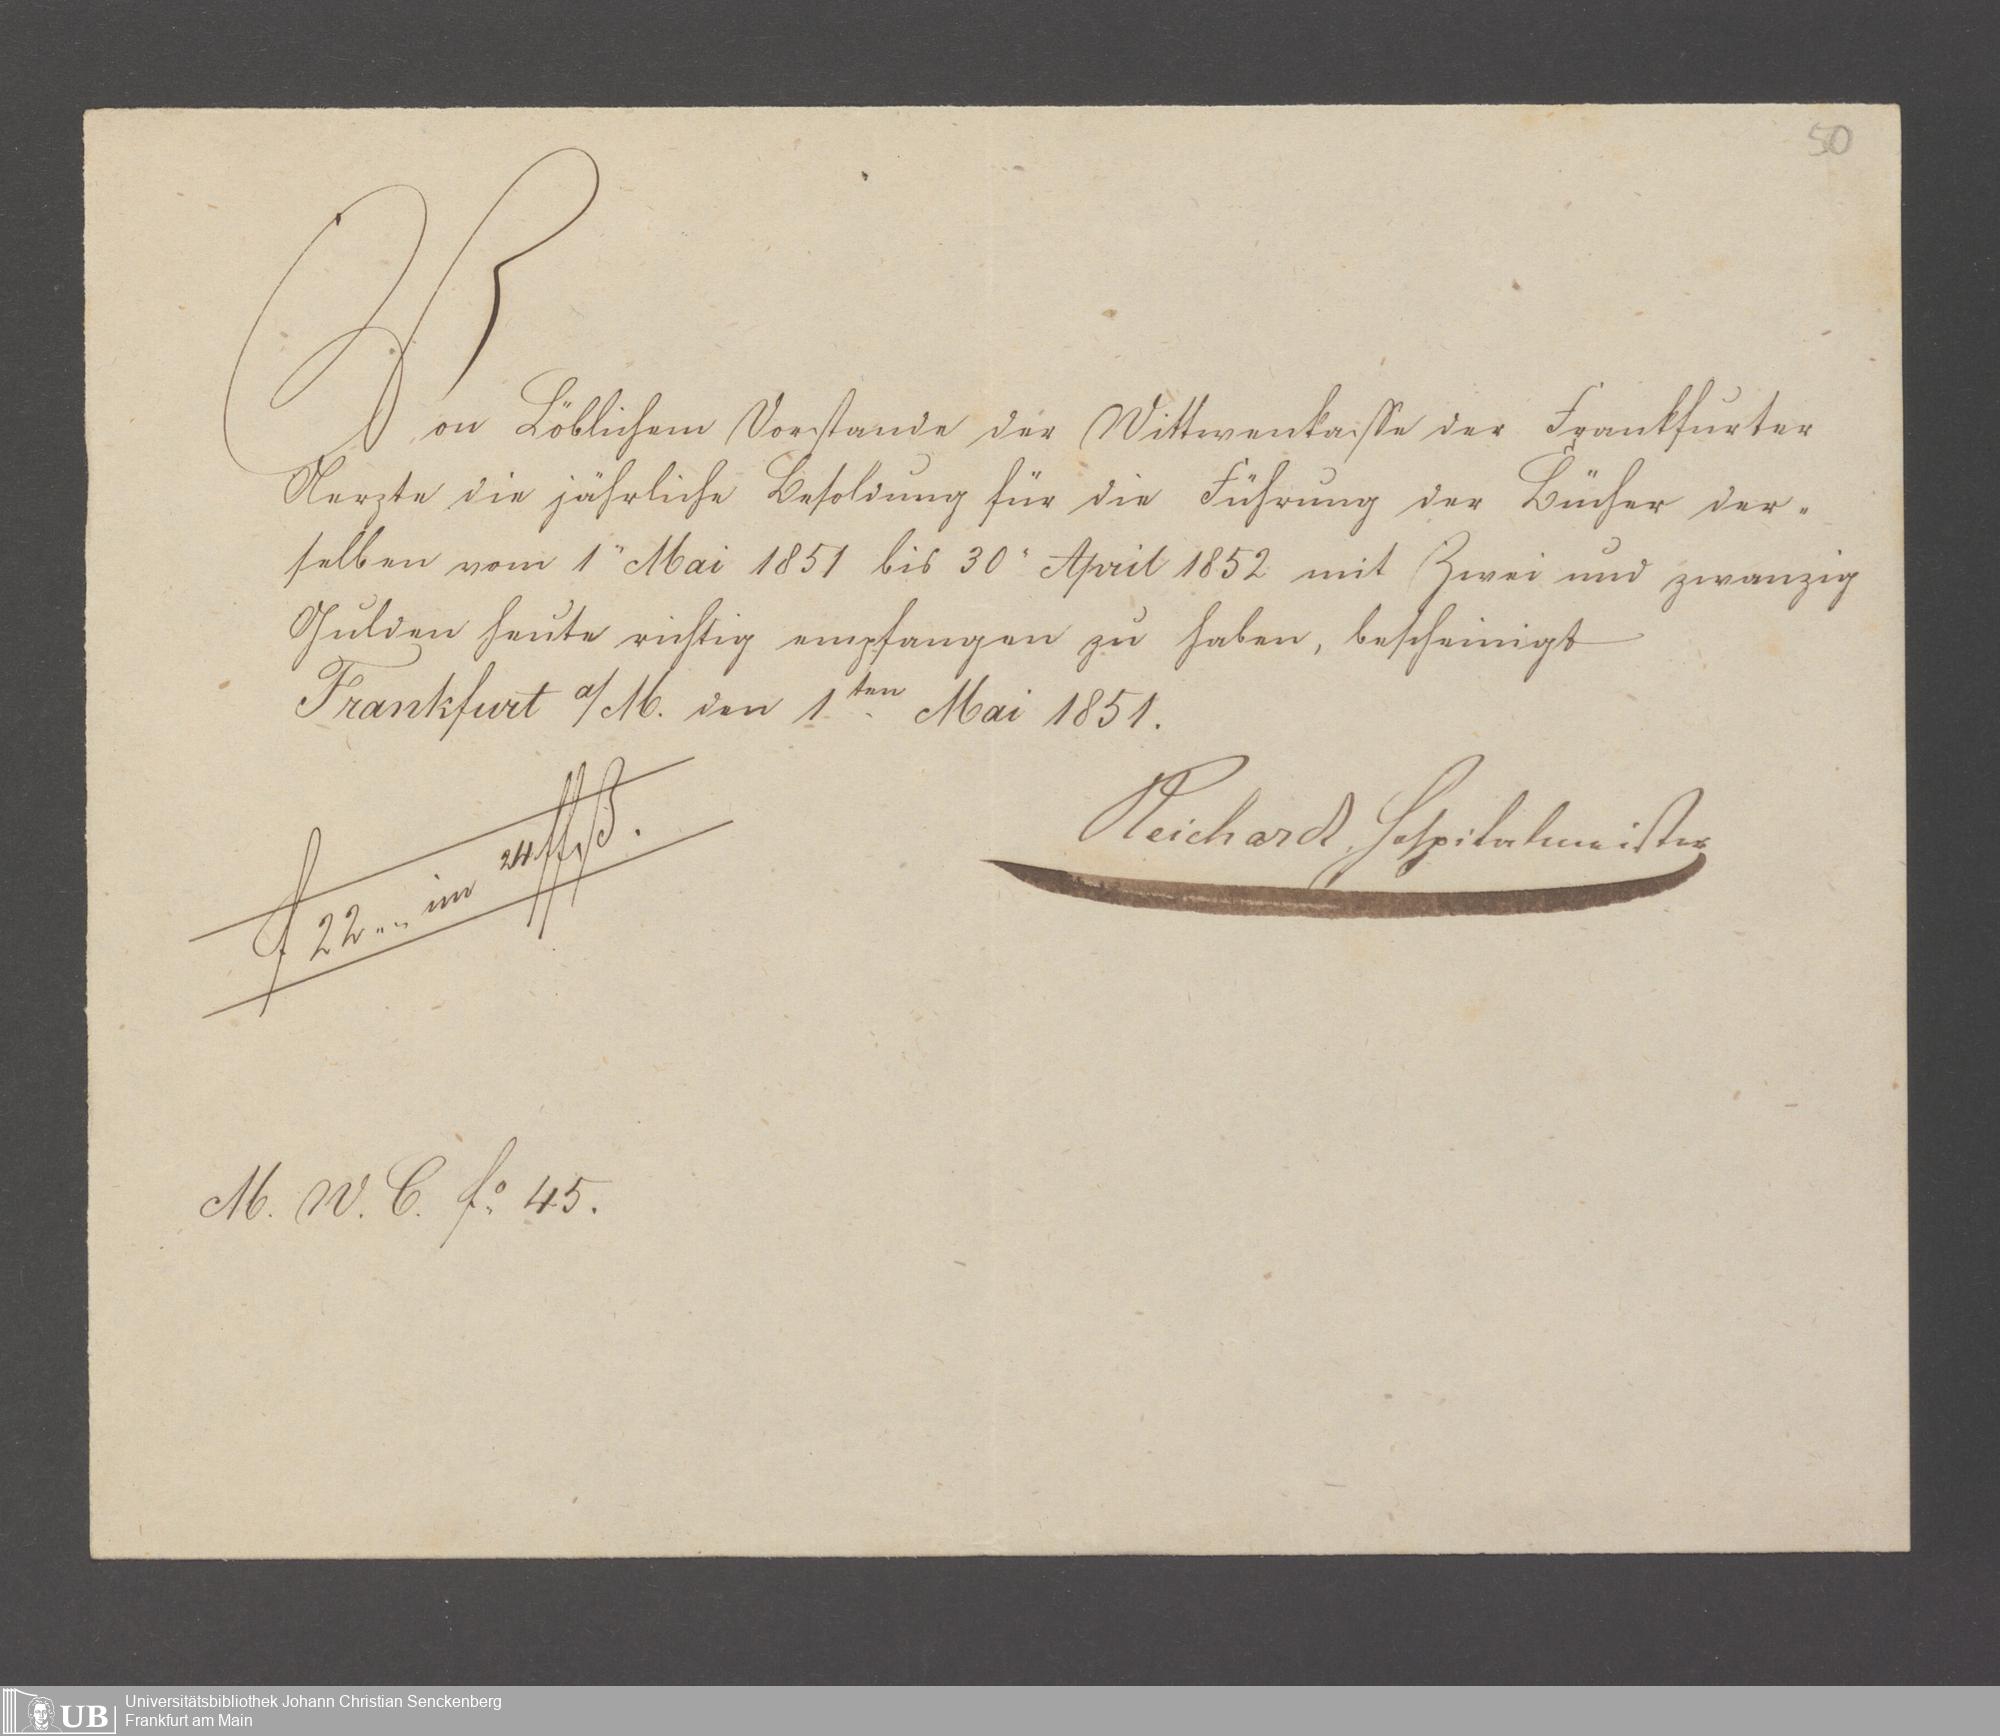 50
Von Löblichem Vorstande der Wittwenkasse der Frankfurter
Aerzte die jährliche Besoldung für die Führung der Bücher der-
selben vom 1" Mai 1851 bis 30" April 1852 mit Zwei und zwanzig
Gulden heute richtig empfangen zu haben, bescheinigt
Frankfurt a/M. den 1ten Mai 1851.
Reichard, Hospitalmeister
f 22 „ „ im 24 ffß.
M. W. C. fo 45.
UB
Universitätsbibliothek Johann Christian Senckenberg
Frankfurt am Main